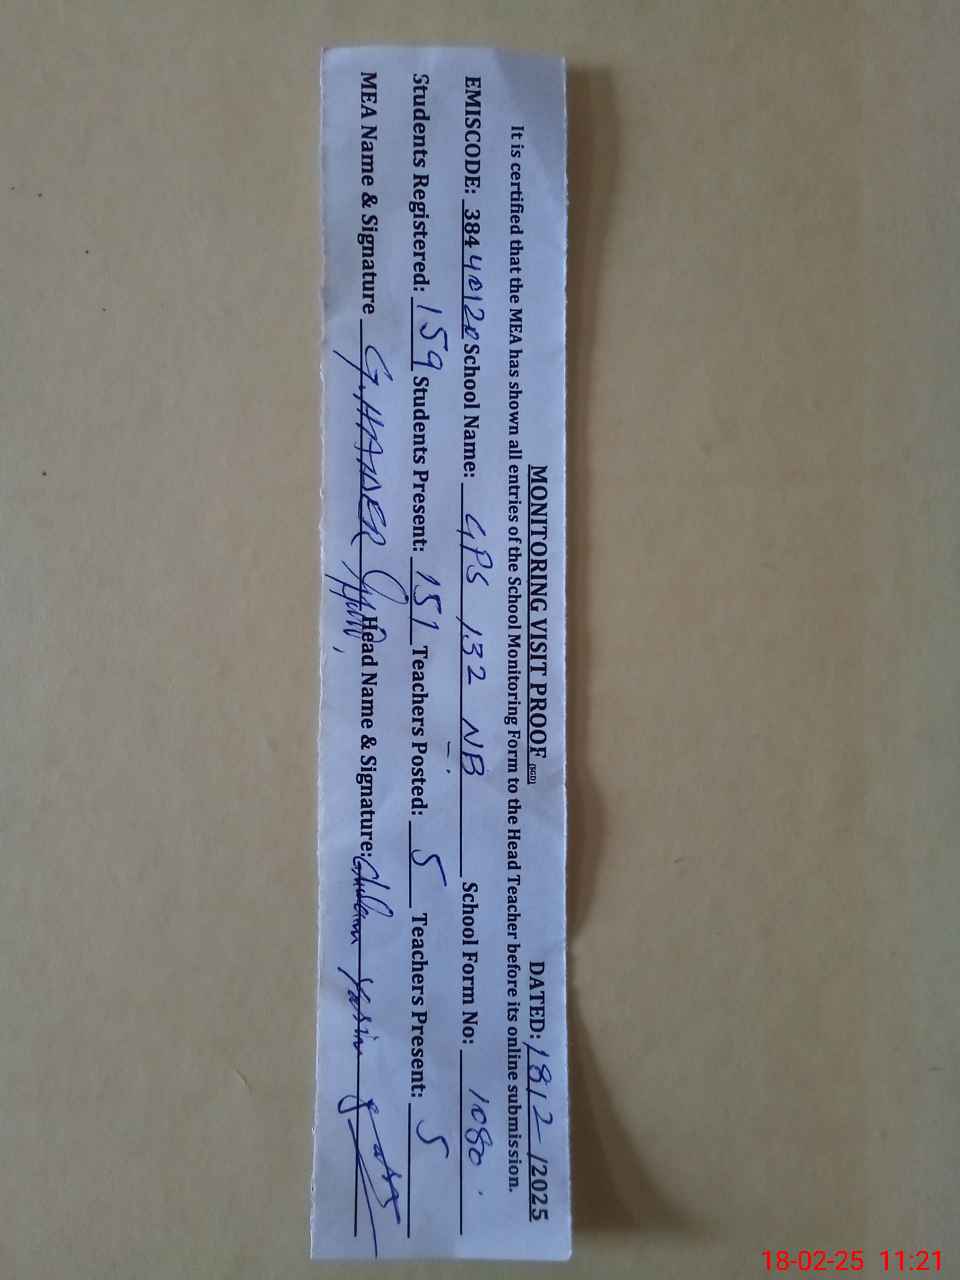 MONITORING VISIT PROOF (SGD) DATED: 18/2/2025
It is certified that the MEA has shown all entries of the School Monitoring Form to the Head Teacher before its online submission.
EMISCODE: 38440120 School Name: GPS 132 NB School Form No: 1080
Students Registered: 159 Students Present: 151 Teachers Posted: 5 Teachers Present: 5
MEA Name & Signature G. HAIDER Head Name & Signature: Ghulam Yasin
18-02-25 11:21